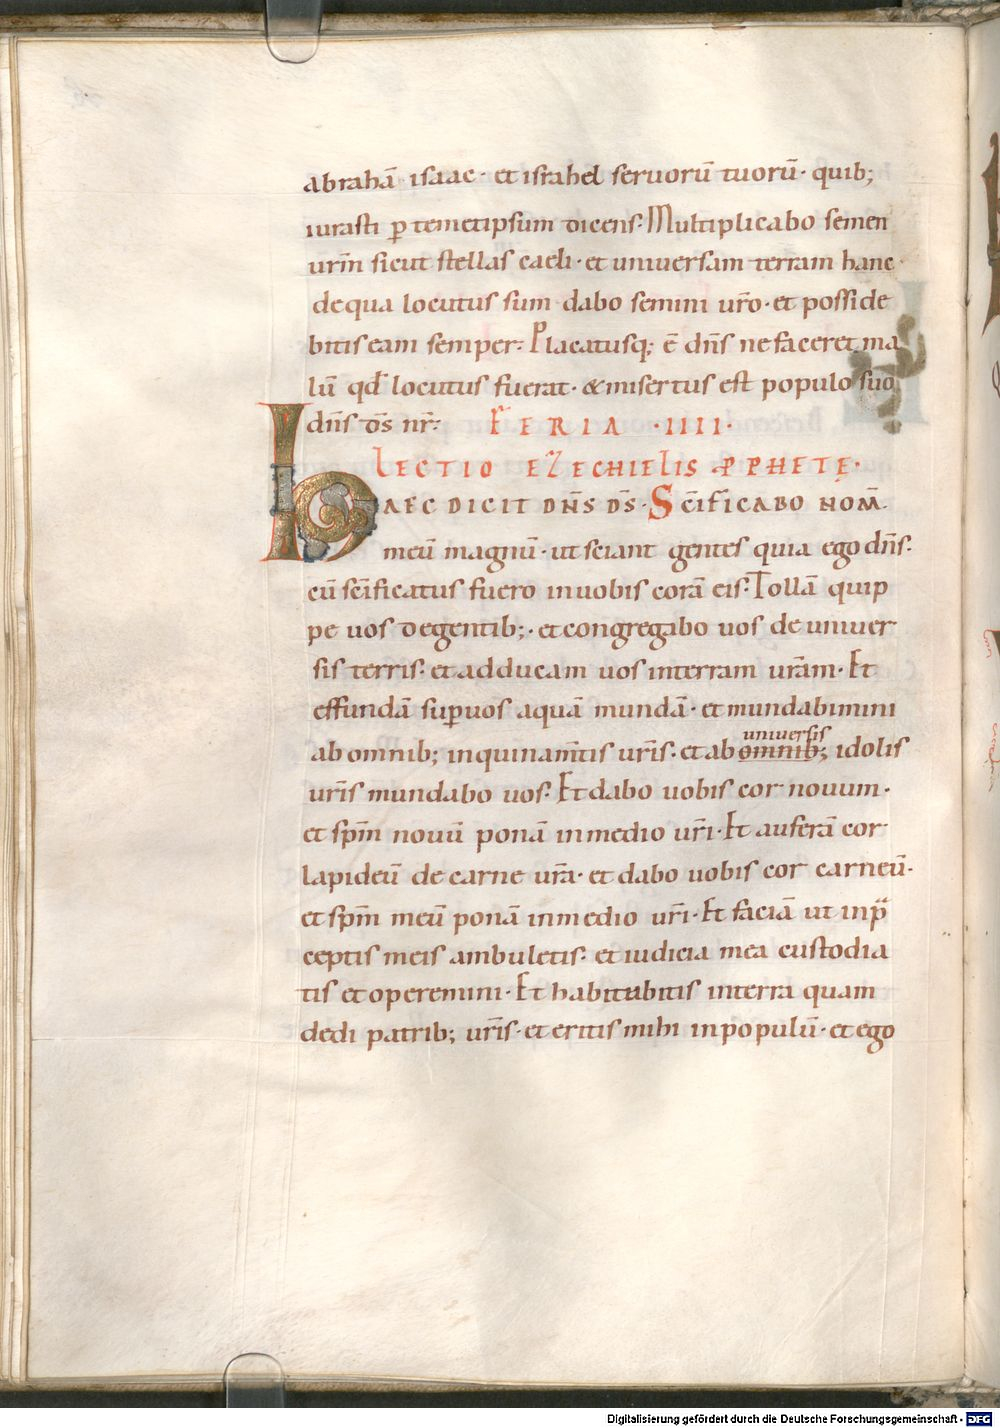 abrahā· isaac· et israhel seruorū tuorū· quib;
iurasti ꝑ temetipsum dicens· Multiplicabo semen
urm̄ sicut stellas caeli· et uniuersam terram hanc·
dequa locutus sum dabo semini ur̄o· et posside
bitis eam semper· Placatusq; ē dn̄s nefaceret ma
lū qđ locutus fuerat· & misertus est populo suo
dn̄s d̄s nr̄· FERIA ·IIII·
LECTIO EZECHIELIS PPHETĘ·
HAEC DICIT DN̄S D̄S· SCĪFICABO NOM̄
meū magnū· ut sciant gentes quia ego dn̄s·
cū scīficatus fuero inuobis corā eis· Tollā quip
pe uos degentib;· et congregabo uos de uniuer
sis terris· et adducam uos interram urām· Et
effundā suꝑuos aquā mundā· et mundabimini
ab omnib; inquinam̄tis ur̄is· et ab omnib; idolis
uniuersis
ur̄is mundabo uos· Et dabo uobis cor nouum·
et spm̄ nouū ponā inmedio ur̄i· Et auferā cor
lapideū de carne ur̄a· et dabo uobis cor carneū·
et spm̄ meū ponā inmedio ur̄i· Et faciā ut inp̄
ceptis meis ambuletis· et iudicia mea custodia
tis et operemini· Et habitabitis interra quam
dedi patrib; ur̄is· et eritis mihi inpopulū· et ego
Digitalisierung gefördert durch die Deutsche Forschungsgemeinschaft - DFG